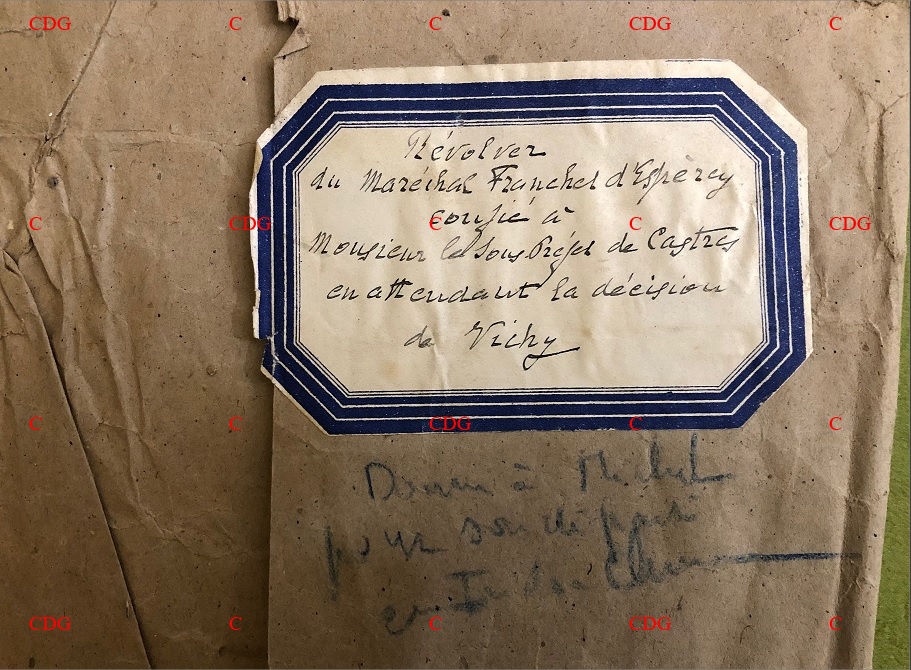 CDG C C CDG C
Révolver
du Maréchal Franchet d'Espèrey
C CDG C C CDG
confié à
Monsieur le Sous.Préfet de Castres
en attendant la décision
de Vichy
C C CDG C C
Donné à Michel
pour son départ
en Indochine
CDG C C CDG C